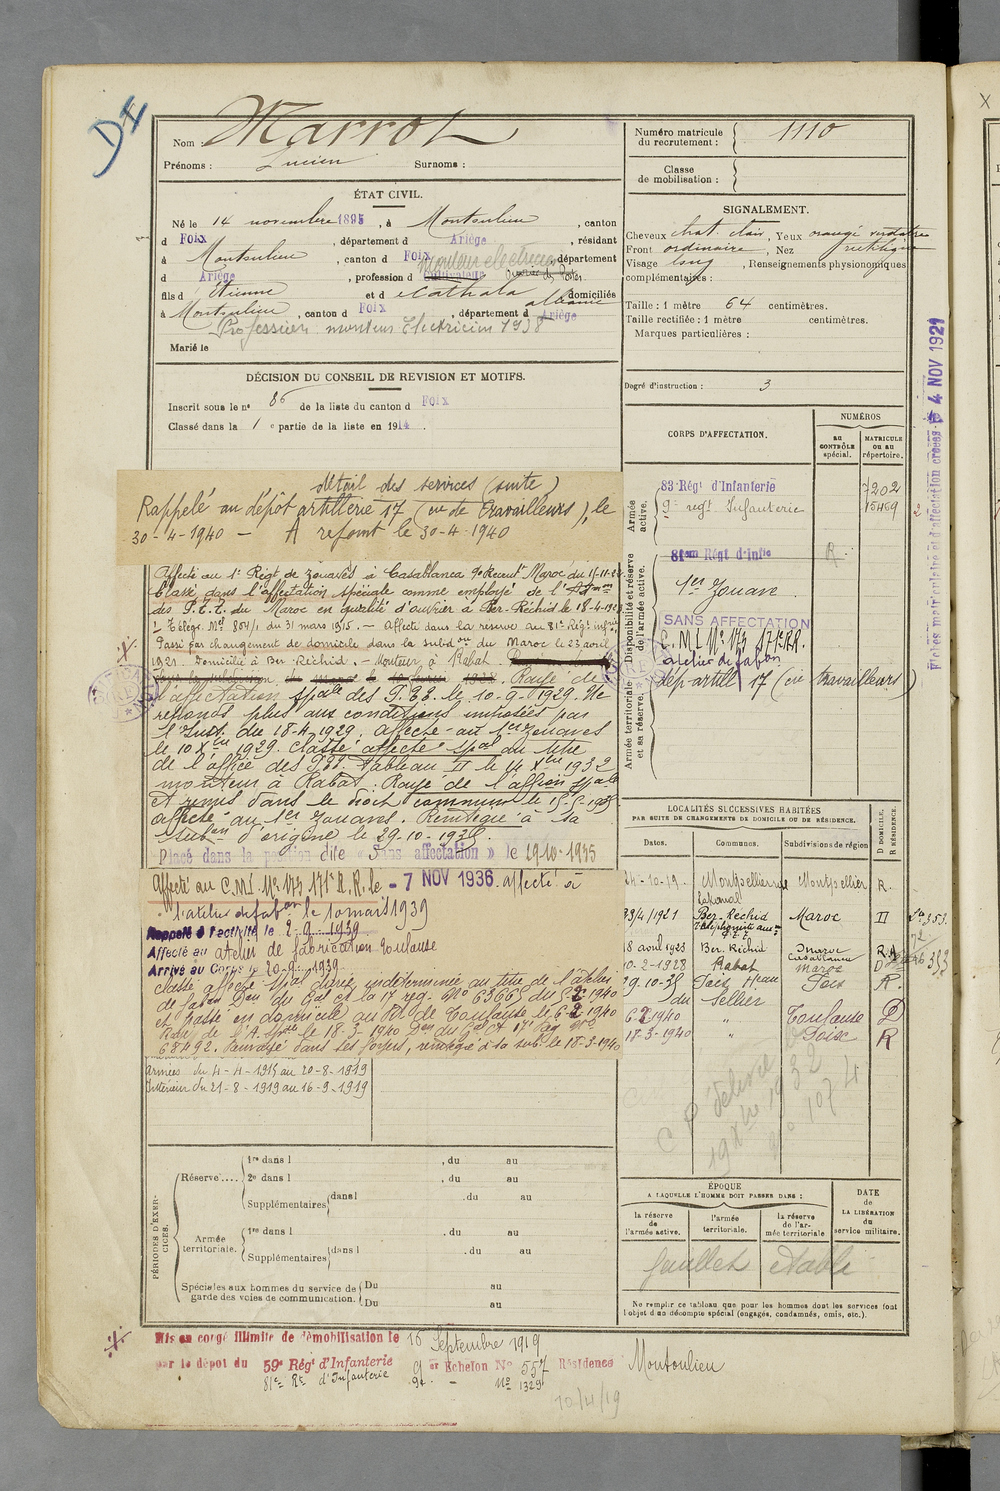 DI
Nom Marrot
Prénoms : Lucien Surnoms :
ÉTAT CIVIL.
Né le 14 novembre 1895, à Montoulieu, canton
d Foix, département d Ariège, résidant
à Montoulieu, canton d Foix, département
monteur électricien
d Ariège, profession d cultivateur
fils d Etienne et d Cathala domiciliés
à Montoulieu, canton d Foix, département d Ariège
Profession monteur Electricien 1938
Marié le
DÉCISION DU CONSEIL DE REVISION ET MOTIFS.
Inscrit sous le n° 86 de la liste du canton d Foix
Classé dans la 1 e partie de la liste en 1914.
détail des services (suite)
Rappelé au dépôt artillerie 17 (cie de Travailleurs), le
30-4-1940 — A rejoint le 30-4-1940
Affecté au 1er Régt de Zouaves à Casablanca
Classé dans l'affectation spéciale comme employé de l'
des P.T.T. du Maroc en qualité d'ouvrier à Ber-Réchid le 18-4-
du 31 mars 1915. — Affecté dans la réserve au 81e Régt infrie
Passé par changement de domicile dans la subdon du Maroc le 23 avril
1921. Domicilié à Ber Réchid. - Monteur à Rabat.
Rayé de
l'affectation spale des P.T.T. le 10-9-1929. Ne
répond plus aux conditions imposées par
l'Inst. du 18-4-1929. Affecté au 1er Zouaves
le 10 Xbre 1929. Classé affecté spal au titre
de l'office des P.T.T. Tableau II le 14 Xbre 1932
monteur à Rabat. Rayé de l'affion spale
et remis dans le droit commun le
affecté au 1er Zouaves. Réintégré à sa
subon d'origine le 29-10-1935.
Placé dans la position dite « Sans affectation » le 29-10-1935
Affecté au C.M.I. No 173 171e R.R. le - 7 NOV 1936. affecté à
l'atelier de fabon le 10 mars 1939
Rappelé à l'activité le 2-9-1939
Affecté au atelier de fabrication Toulouse
Arrivé au Corps le 20-9-1939
Classé affecté spal durée indéterminée au titre de l'atelier
de fabon Don du Gal ct la 17 rég. No 6366 du 6 2 1940
et passé en domicile au Rt de Toulouse le 6-2 1940
Radié de l'A. spale le 18-3-1940 Don du Gal Ct 17e Rég No
68492. Renvoyé dans ses foyers, réintégré à la sub. le 18-3-1940
Armées du 4-4-1915 au 20-8-1919
Intérieur du 21-8-1919 au 16-9-1919
PÉRIODES D'EXERCICES.
Réserve....
1re dans l , du au
2e dans l , du au
Supplémentaires dans l , du au
Armée territoriale.
1re dans l , du au
Supplémentaires dans l , du au
Spéciales aux hommes du service de garde des voies de communication.
Du au
Du au
Numéro matricule du recrutement : 1110
Classe de mobilisation :
SIGNALEMENT.
Cheveux chat. clair, Yeux orangé verdâtre
Front ordinaire, Nez rectiligne
Visage long, Renseignements physionomiques
complémentaires :
Taille : 1 mètre 64 centimètres.
Taille rectifiée : 1 mètre centimètres.
Marques particulières :
Degré d'instruction : 3
CORPS D'AFFECTATION.
NUMÉROS
AU CONTRÔLE spécial.
MATRICULE OU AU répertoire.
Armée active.
83 Régt d'Infanterie 7202
9e régt Infanterie 15459
Disponibilité et réserve de l'armée active.
81ème Régt d'Infie R
1er Zouave
SANS AFFECTATION
C.M.I. No 173 171e R.R.
atelier de fabon
Armée territoriale et sa réserve.
Dép. artill 17 (cie travailleurs)
Fiches matriculaire et d'affectation créées le 4 NOV 1921
LOCALITÉS SUCCESSIVES HABITÉES
PAR SUITE DE CHANGEMENTS DE DOMICILE OU DE RÉSIDENCE.
Dates. Communes. Subdivisions de région D DOMICILE. R RÉSIDENCE.
24-10-19 Montpellier Montpellier R.
23/4/1921 Ber-Rechid Maroc D
18 avril 1923 Ber. Réchid Casablanca R.
10-2-1928 Rabat Maroc D
29.10-35 Foix Foix R.
6 2 1940 " Toulouse D
18-3-1940 " Foix R
C P délivré
19 Xbre 1932
No 1074
ÉPOQUE
A LAQUELLE L'HOMME DOIT PASSER DANS :
la réserve de l'armée active.
l'armée territoriale.
la réserve de l'armée territoriale
DATE de LA LIBÉRATION du service militaire.
Ne remplir ce tableau que pour les hommes dont les services font
l'objet d'un décompte spécial (engagés, condamnés, omis, etc.).
Mis en congé illimité de démobilisation le 16 Septembre 1919
par le dépôt du 59e Régt d'Infanterie 9 er Echelon No 557 Résidence Montoulieu
81e Rt d'Infanterie 9e - No 1329
10/4/19